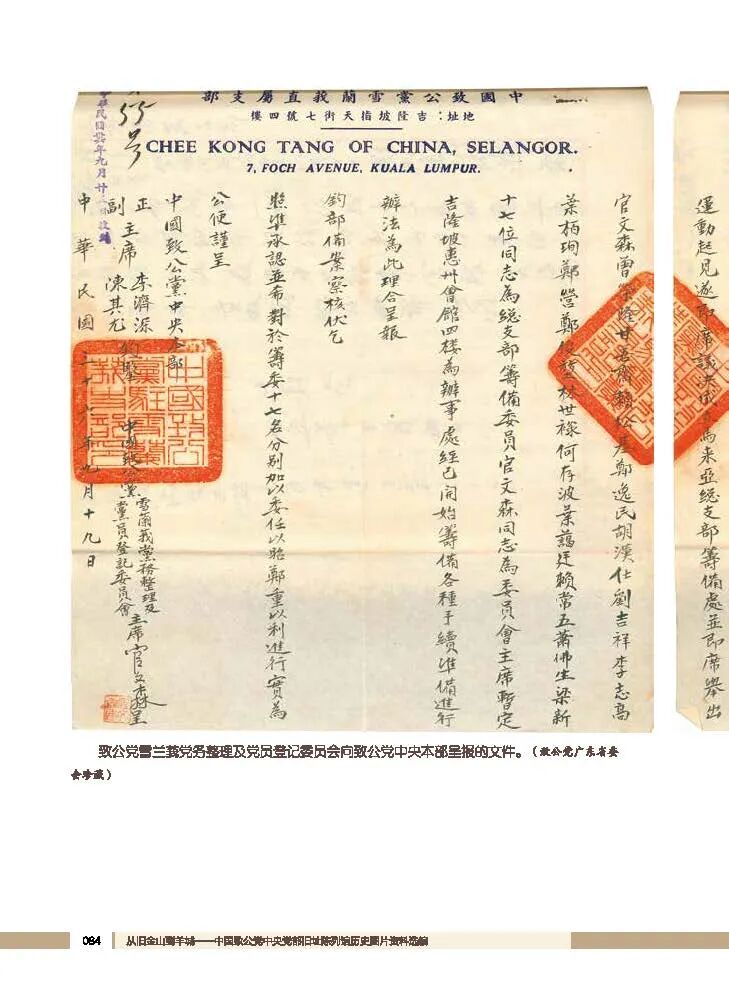 中國致公黨雪蘭莪直屬支部
地址：吉隆坡指天街七號四樓
CHEE KONG TANG OF CHINA, SELANGOR.
7, FOCH AVENUE, KUALA LUMPUR.
運動起見遂即席議決成立馬來亞總支部籌備處並即席舉出
官文森曾榮隆甘善齋賴松基鄭逸民胡漢仕劉吉祥李志高
葉栢珣鄭螢鄭林世祿何存波葉藹廷賴常五蕭佛生梁新
十七位同志為總支部籌備委員官文森同志為委員會主席暫定
吉隆坡惠州會館四樓為辦事處經已開始籌備各種手續準備進行
辦法為此理合呈報
鈞部備案察核伏乞
照準承認並希對於籌委十七名分別加以委任以昭鄭重以利進行實為
公便謹呈
中國致公黨中央本部
正 主席 李濟深
副 陳其尤 鈞鑒
中國致公黨 雪蘭莪黨務整理及
黨員登記委員會 主席官文森呈
中華民國三十六年九月十九日
55號
年九月廿三日收
致公党雪兰莪党务整理及党员登记委员会向致公党中央本部呈报的文件。（致公党广东省委
会珍藏）
084 从旧金山到羊城——中国致公党中央党部旧址陈列馆历史图片资料选编